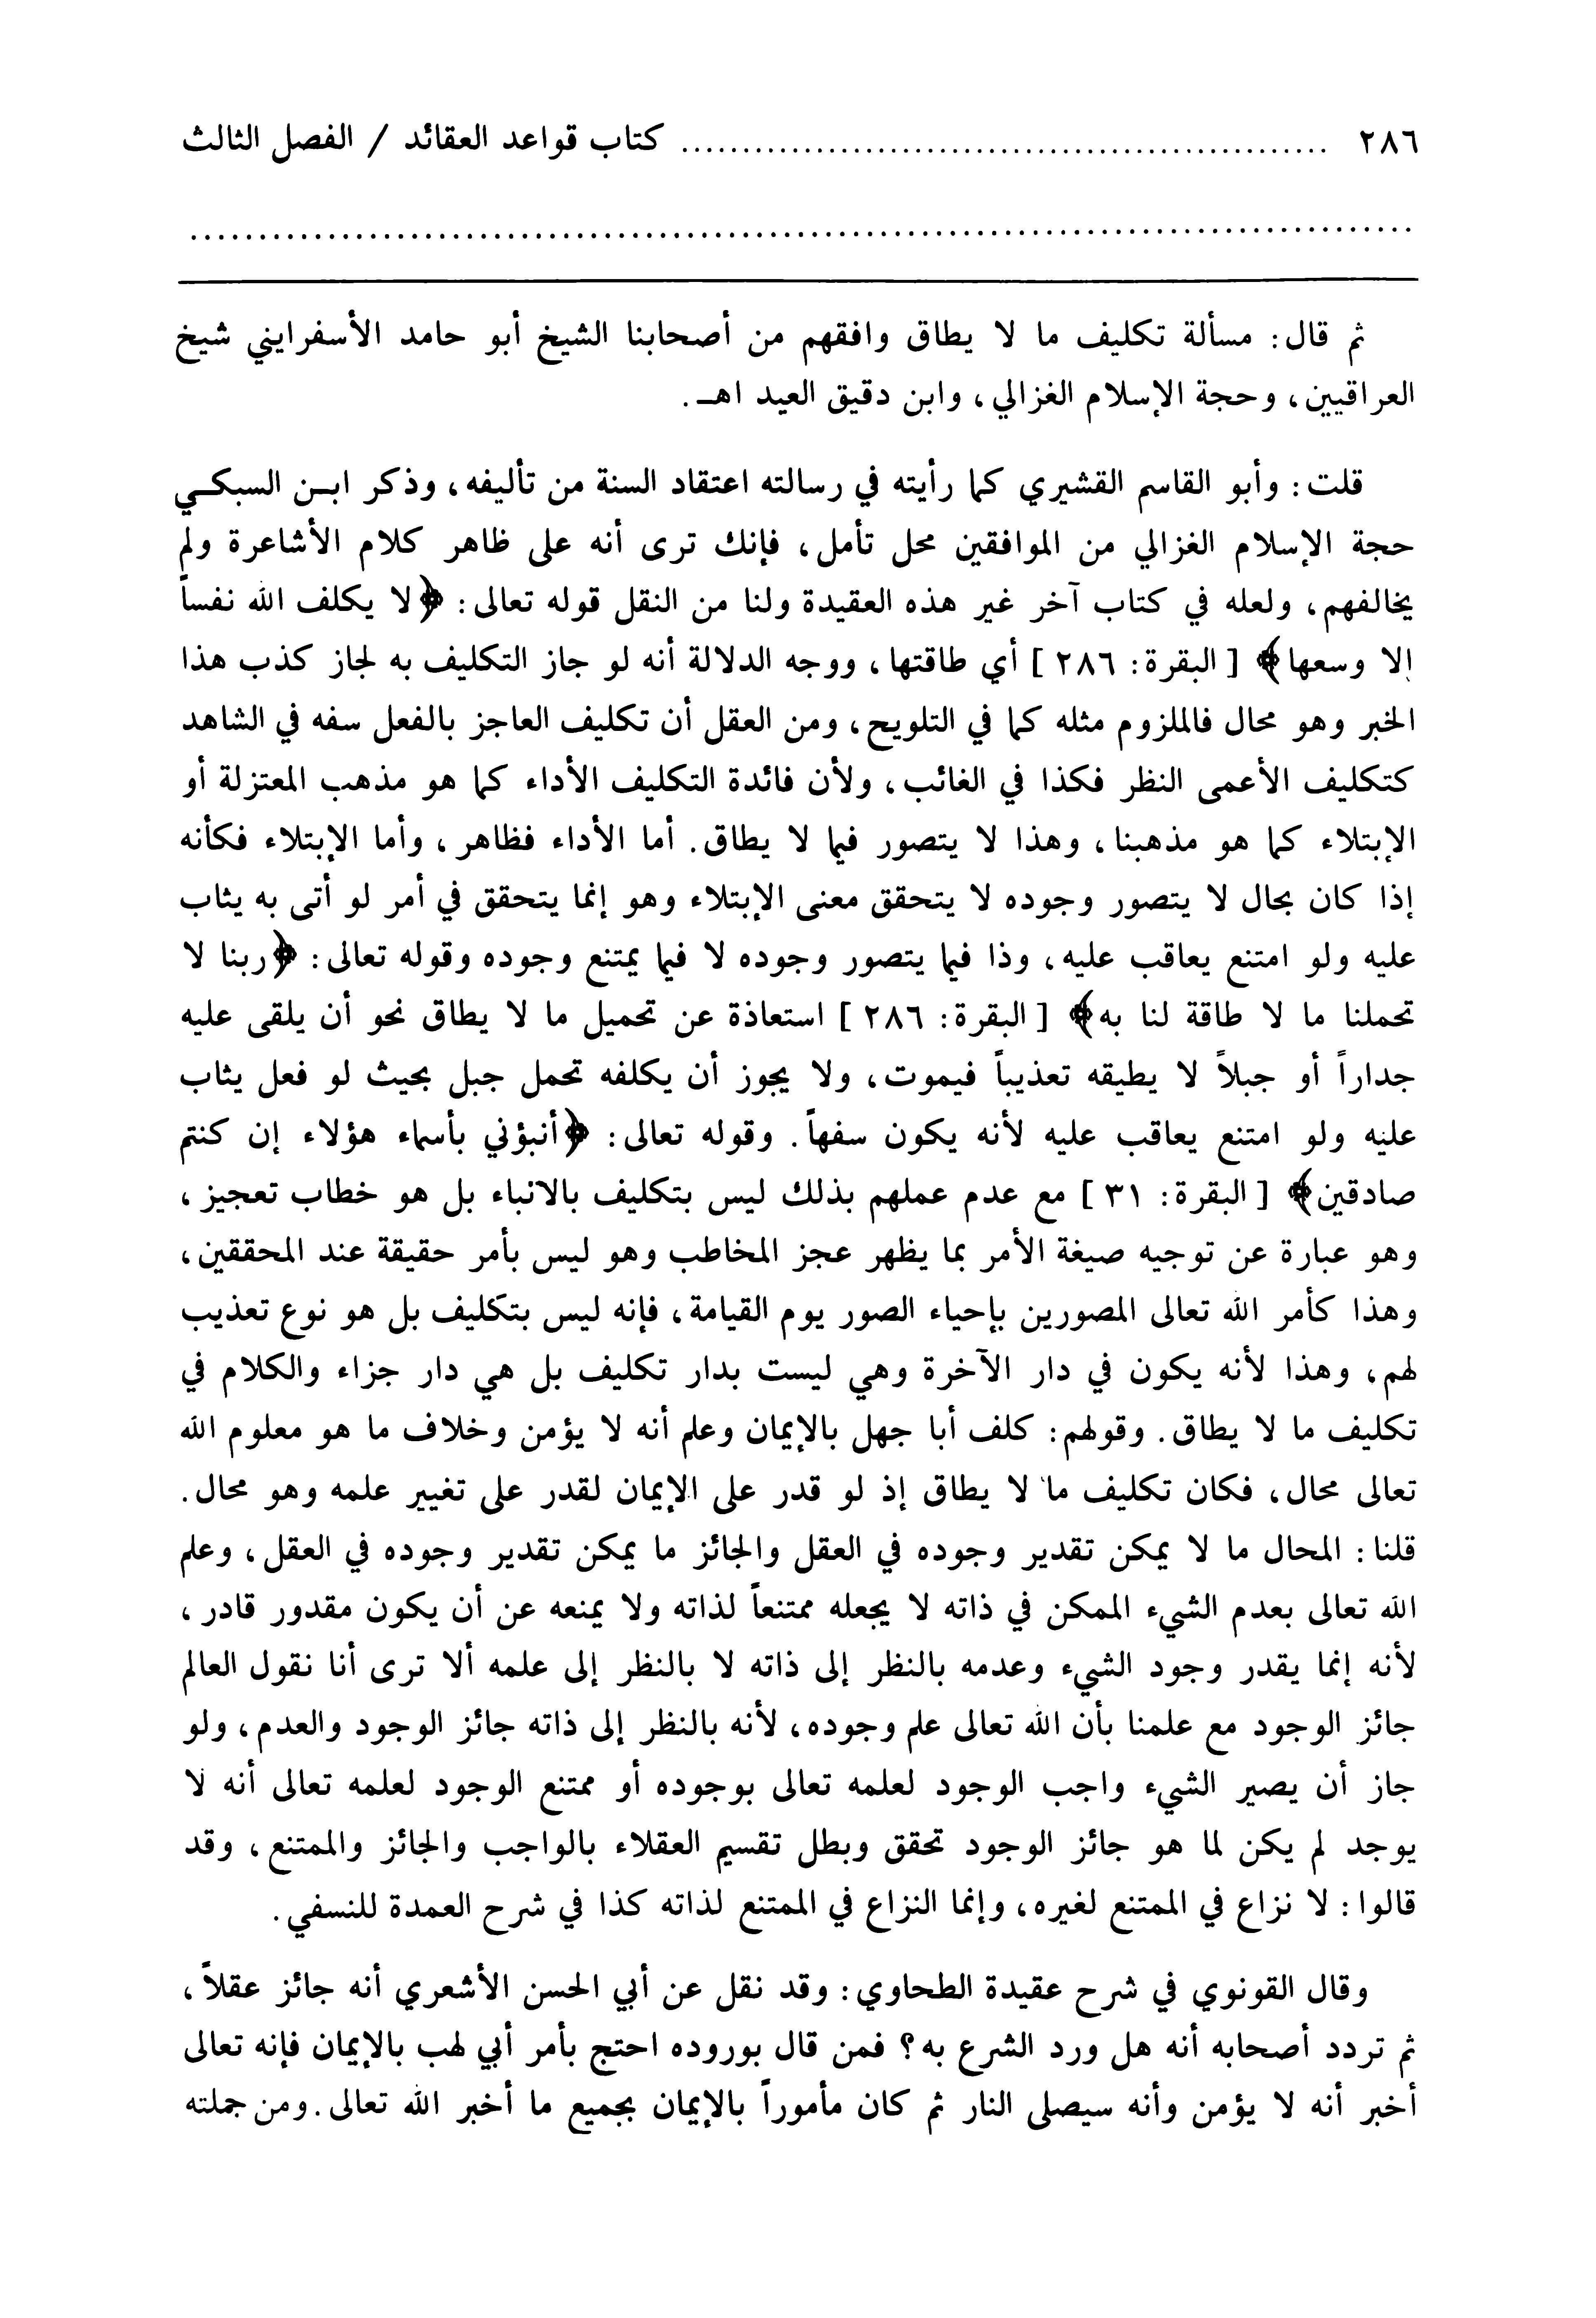 ٢٨٦ ........................................ كتاب قواعد العقائد / الفصل الثالث
................................................................................
ثم قال: مسألة تكليف ما لا يطاق وافقهم من أصحابنا الشيخ أبو حامد الأسفرايني شيخ
العراقيين، وحجة الإسلام الغزالي، وابن دقيق العيد اهـ.
قلت: وأبو القاسم القشيري كما رأيته في رسالته اعتقاد السنة من تأليفه، وذكر ابن السبكي
حجة الإسلام الغزالي من الموافقين محل تأمل، فإنك ترى أنه على ظاهر كلام الأشاعرة ولم
يخالفهم، ولعله في كتاب آخر غير هذه العقيدة ولنا من النقل قوله تعالى: ﴿لا يكلف الله نفساً
إلا وسعها﴾ [البقرة: ٢٨٦] أي طاقتها، ووجه الدلالة أنه لو جاز التكليف به لجاز كذب هذا
الخبر وهو محال فالملزوم مثله كما في التلويح، ومن العقل أن تكليف العاجز بالفعل سفه في الشاهد
كتكليف الأعمى النظر فكذا في الغائب، ولأن فائدة التكليف الأداء كما هو مذهب المعتزلة أو
الإبتلاء كما هو مذهبنا، وهذا لا يتصور فيما لا يطاق. أما الأداء فظاهر، وأما الإبتلاء فكأنه
إذا كان بحال لا يتصور وجوده لا يتحقق معنى الإبتلاء وهو إنما يتحقق في أمر لو أتى به يثاب
عليه ولو امتنع يعاقب عليه، وذا فيما يتصور وجوده لا فيما يمتنع وجوده وقوله تعالى: ﴿ربنا لا
تحملنا ما لا طاقة لنا به﴾ [البقرة: ٢٨٦] استعاذة عن تحميل ما لا يطاق نحو أن يلقى عليه
جداراً أو جبلاً لا يطيقه تعذيباً فيموت، ولا يجوز أن يكلفه تحمل جبل بحيث لو فعل يثاب
عليه ولو امتنع يعاقب عليه لأنه يكون سفهاً. وقوله تعالى: ﴿أنبؤني بأسماء هؤلاء إن كنتم
صادقين﴾ [البقرة: ٣١] مع عدم عملهم بذلك ليس بتكليف بالانباء بل هو خطاب تعجيز،
وهو عبارة عن توجيه صيغة الأمر بما يظهر عجز المخاطب وهو ليس بأمر حقيقة عند المحققين،
وهذا كأمر الله تعالى المصورين بإحياء الصور يوم القيامة، فإنه ليس بتكليف بل هو نوع تعذيب
لهم، وهذا لأنه يكون في دار الآخرة وهي ليست بدار تكليف بل هي دار جزاء والكلام في
تكليف ما لا يطاق. وقولهم: كلف أبا جهل بالإيمان وعلم أنه لا يؤمن وخلاف ما هو معلوم الله
تعالى محال، فكان تكليف ما لا يطاق إذ لو قدر على الإيمان لقدر على تغيير علمه وهو محال.
قلنا: المحال ما لا يمكن تقدير وجوده في العقل والجائز ما يمكن تقدير وجوده في العقل، وعلم
الله تعالى بعدم الشيء الممكن في ذاته لا يجعله ممتنعاً لذاته ولا يمنعه عن أن يكون مقدور قادر،
لأنه إنما يقدر وجود الشيء وعدمه بالنظر إلى ذاته لا بالنظر إلى علمه ألا ترى أنا نقول العالم
جائز الوجود مع علمنا بأن الله تعالى علم وجوده، لأنه بالنظر إلى ذاته جائز الوجود والعدم، ولو
جاز أن يصير الشيء واجب الوجود لعلمه تعالى بوجوده أو ممتنع الوجود لعلمه تعالى أنه لا
يوجد لم يكن لما هو جائز الوجود تحقق وبطل تقسيم العقلاء بالواجب والجائز والممتنع، وقد
قالوا: لا نزاع في الممتنع لغيره، وإنما النزاع في الممتنع لذاته كذا في شرح العمدة للنسفي.
وقال القونوي في شرح عقيدة الطحاوي: وقد نقل عن أبي الحسن الأشعري أنه جائز عقلاً،
ثم تردد أصحابه أنه هل ورد الشرع به؟ فمن قال بوروده احتج بأمر أبي لهب بالإيمان فإنه تعالى
أخبر أنه لا يؤمن وأنه سيصلى النار ثم كان مأموراً بالإيمان بجميع ما أخبر الله تعالى. ومن جملته